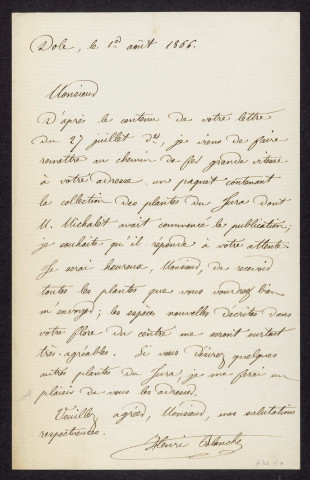 Dole, le 1er août 1866.
Monsieur
D'après le contenu de votre lettre
du 27 juillet der, je viens de faire
remettre au chemin de fer grande vitesse
à votre adresse un paquet contenant
la collection des plantes du Jura dont
M. Michalet avait commencé la publication;
je souhaite qu'il réponde à votre attente
Je serai heureux, Monsieur, de recevoir
toutes les plantes que vous voudrez bien
m'envoyer; les espèces nouvelles décrites dans
votre flore du centre me seront surtout
très-agréables. Si vous désirez quelques
autres plantes du Jura, je me ferai un
plaisir de vous les adresser.
Veuillez agréer, Monsieur, mes salutations
respectueuses.
Henri Blanche